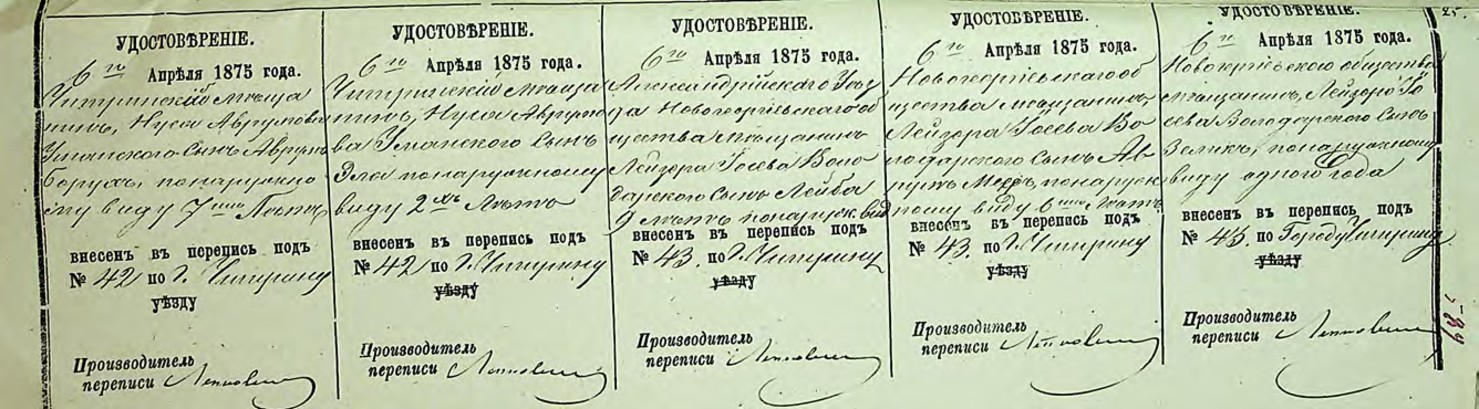 25.
УДОСТОВѢРЕНІЕ.
6го Апрѣля 1875 года.
Чигринскій мѣща
нинъ, Нусл Аврумова
Уманского Сынъ Аврумъ
Борухъ, понаружно
му виду 7ми Лѣтъ
внесенъ въ перепись подъ
№ 42 по г. Чигрину
уѣзду
Производитель
переписи
УДОСТОВѢРЕНІЕ.
6го Апрѣля 1875 года.
Чигринскій мѣща
нинъ, Нусл Авруmо
ва Уманского Сынъ
Эля понаружному
виду 2хъ Лѣтъ
внесенъ въ перепись подъ
№ 42 по г. Чигрину
уѣзду
Производитель
переписи
УДОСТОВѢРЕНІЕ.
6го Апрѣля 1875 года.
Александрійскаго Уѣз
да Новогеоргіевскаго об
щества мѣщанинъ
Лейзора Іосева Воло
дарского Сынъ Лейба
9 лѣтъ понаружн. вид
внесенъ въ перепись подъ
№ 43. по г. Чигрину
уѣзду
Производитель
переписи
УДОСТОВѢРЕНІЕ.
6го Апрѣля 1875 года.
Новогеоргіевскаго об
щества мѣщанинъ,
Лейзора Іосева Во
лодарского Сынъ Ав
румъ понаруж
ному виду 6ти Лѣтъ
внесенъ въ перепись подъ
№ 43. по г. Чигрину
уѣзду
Производитель
переписи
УДОСТОВѢРЕНІЕ.
6го Апрѣля 1875 года.
Новогеоргіевского общества
мѣщанинъ, Лейзора Іо
сева Володарского Сынъ
Зеликъ, понаружному
виду одного года
внесенъ въ перепись подъ
№ 43. по Городу Чигрину
уѣзду
Производитель
переписи